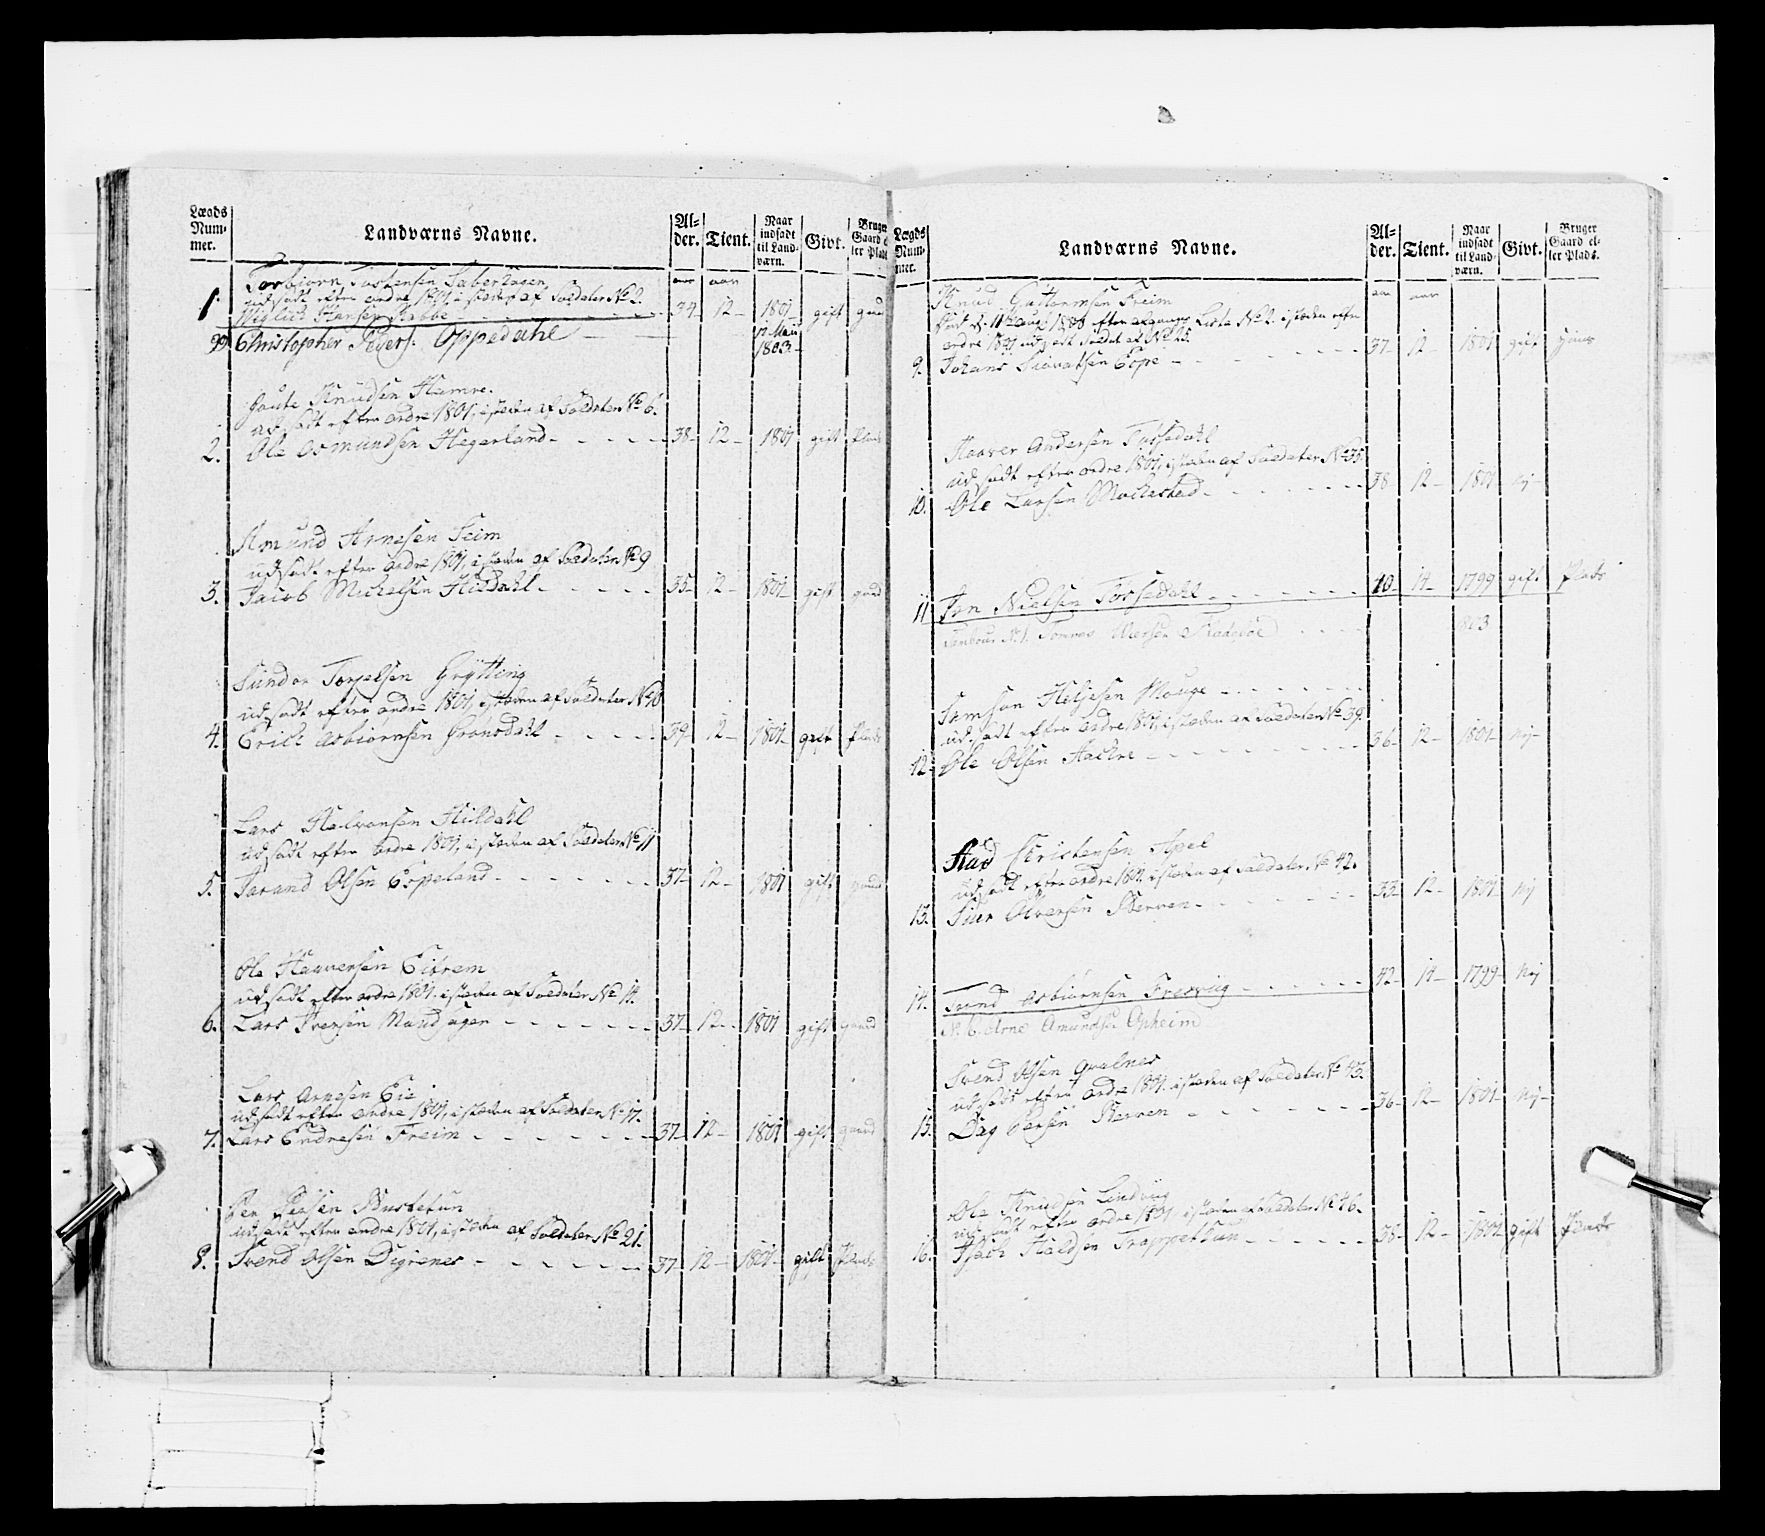 Lægds Num- mer. Landværns Navne. Al- der. Tient. Naar indsadt til Land- værn. Givt. Bruger Gaard e ler Plads
aar aar
Torbiørn Tostensen
udsadt efter ordre 1801 i stæden af Soldater No 2.
1. Hansen 34 12 1801 gift gaard
99 Christopher Peders. Oppedahl 12 Mai 1803
Goute Knudsen Hamre.
udsadt efter ordre 1801, i stæden af Soldater No 6.
2. Ole Osmundsen Hegerland 38 12 1801 gift Plads
Amund Arnesen Seim
udsadt efter ordre 1801, i stæden af Soldater No 9
3. Jacob Michelsen Hildahl 35 12 1801 gift gaard
Sundor Torjelsen Grÿtting
udsadt efter ordre 1801, i stæden af Soldater No 10
4. Erich Asbiørnsen Gronsdahl 39 12 1801 gift Plads
Lars Halvorsen Hildahl
udsadt efter ordre 1801, i stæden af Soldater No 11
5. Tarand Olsen Espeland 37 12 1801 gift gaard
Ole Haaversen Eitrem
udsadt efter ordre 1801. i stæden af Soldater No 14.
6. Lars Iversen Maudsagen 37 12 1801 gift gaard
Lars Arnesen Eie
udsadt efter ordre 1801, i stæden af Soldater No 17.
7. Lars Endresen Freim 37 12 1801 gift gaard
Per Persen Bustetun
udsadt efter ordre 1801, i stæden af Soldater No 21.
8. Svend Olsen Digrenes 37 12 1801 gift Plads
Lægds Num- mer. Landværns Navne. Al- der. Tient. Naar indsadt til Land- værn. Givt. Bruger Gaard el- ler Plads.
aar aar
Knud Guttormsen Freim
d. 11te aug. 1803 efter Liste No 2. i stæden efter
ordre 1801 udsadt Soldat af No 25.
9. Johans Siovatsen Espe 37 12 1801 gift Huus
Haaver Andersen Tyssedahl
udsadt efter ordre 1801, i stæden af Soldater No 35
10. Ole Larsen Mochestad 38 12 1801 nej
11 Jon Nielsen Tÿssedahl 40 14 1799 gift Plads
Tambour No 1. Tomas 1803
Samson Heljesen Mauge
udsadt efter ordre 1801, i stæden af Soldater No 39.
12. Ole Olsen Hakre 36 12 1801 nej
Aad Christensen Apel
udsadt efter ordre 1801. i stæden af Soldater No 42.
13. Siur Olversen Berven 33 12 1801 nej
14. Tosten Asbiørnsen Fresvig 42 14 1799 nej
No 6. Arne Amundsen Opheim
Svend Olsen Qvalnes
udsadt efter ordre 1801. i stæden af Soldater No 43.
15. Dag Persen Berven 36 12 1801 nej
Ole Knudsen Lindvig
udsadt efter ordre 1801 i stæden af Soldater No 46.
16. Isach Haldsen Trappetun 38 12 1801 gift Plads